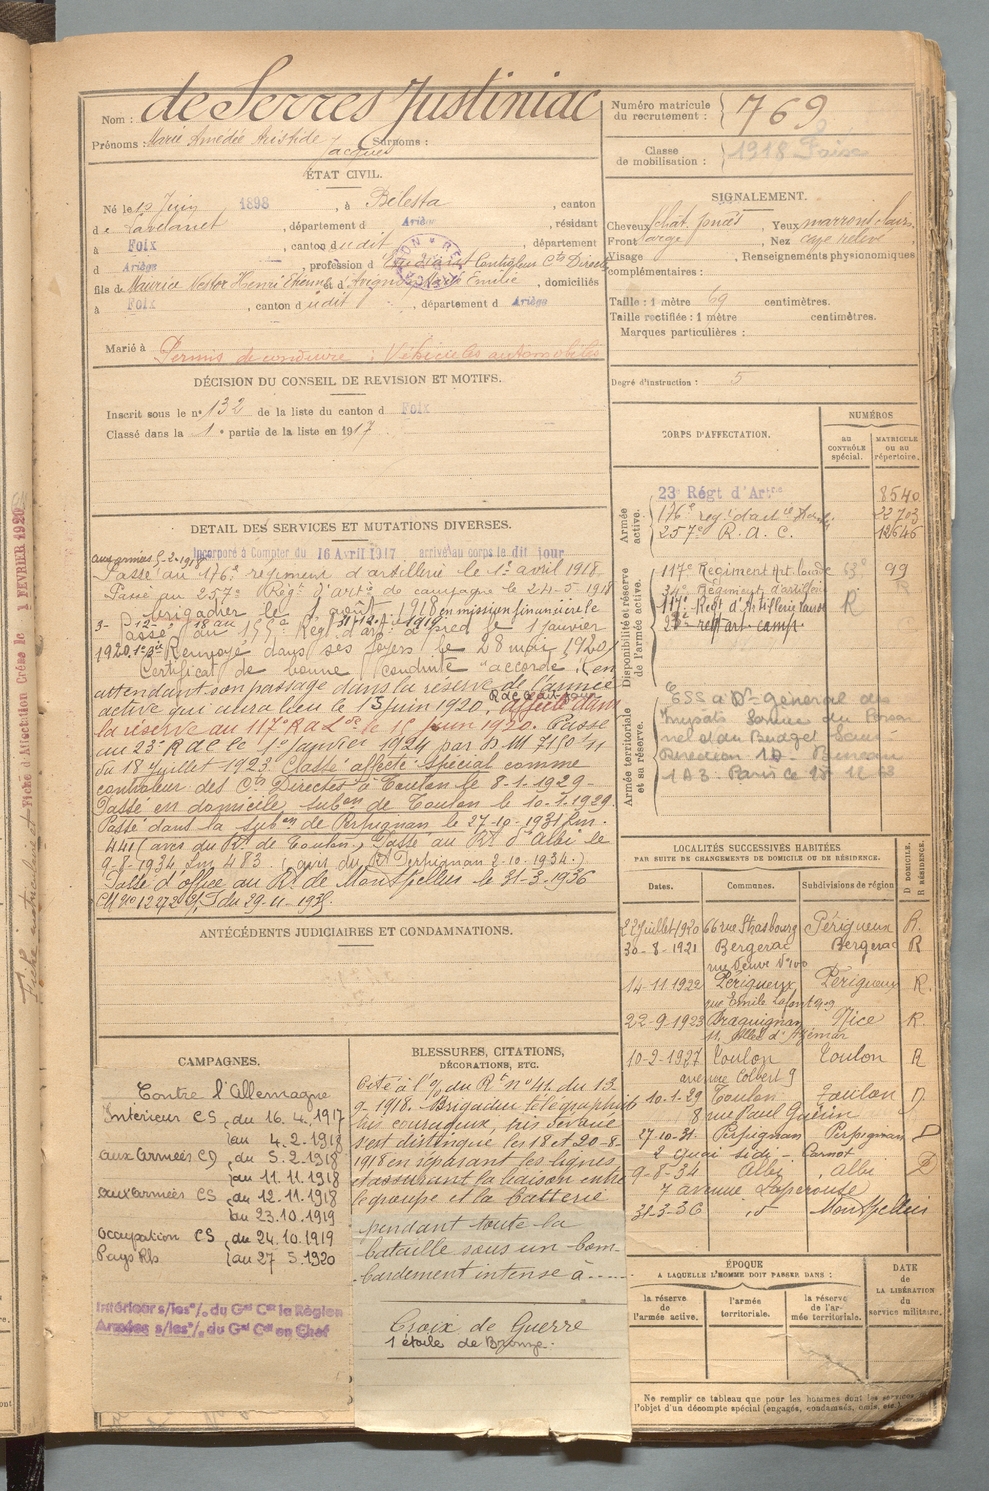 Nom : de Serres Justiniac
Prénoms : Marie Amedée Aristide Jacques Surnoms :
ÉTAT CIVIL.
Né le 10 Juin 1898, à Bélesta, canton
de Lavelanet, département d Ariège, résidant
à Foix, canton d udit, département
d Ariège profession d Contrôleur Ctes Directes
fils de Maurice Nestor Henri Etienne et d' Emilie, domiciliés
à Foix, canton d udit, département d Ariège
Marié à
Permis de conduire : Véhicules automobiles
DÉCISION DU CONSEIL DE REVISION ET MOTIFS.
Inscrit sous le n° 132 de la liste du canton d Foix
Classé dans la 1e partie de la liste en 1917
DETAIL DES SERVICES ET MUTATIONS DIVERSES.
Incorporé à Compter du 16 Avril 1917 arrivé au corps le dit jour
aux armées 5-2-1918
Passé au 176e régiment d'artillerie le 1er avril 1918
Passé au 257e Régt d'arte de campagne le 24-5-1918
brigadier le 1 août 1918 en mission financière le
3-12-18 au 31-12-1919
Passé au Régt d'art à pied le 1 janvier
1920. Renvoyé dans ses foyers le 28 mai 1920
Certificat de bonne conduite "accordé" (en
attendant son passage dans la réserve de l'armée
active qui aura lieu le 15 juin 1920, affecté dans
la réserve au 117e R a Lde le 15 Juin 1920. Passé
au 23e R a C le 1er Janvier 1924 par D M 7150 1/11
du 18 Juillet 1923 Classé affecté spécial comme
controleur des Ctes Directes à Toulon le 8-1-1929-
Passé en domicile subon de Toulon le 10-1-1929.
Passé dans la subon de Perpignan le 27-10-1931 Lm.
441 (avis du Rt de Toulon) Passé au Rt d'Albi le
9-8-1934 Lm 483. (avis du Rt Perpignan 2-10-1934.)
Passé d'office au Rt de Montpellier le 31-3-1936
CM No 12272 du 29-11-1935.
ANTÉCÉDENTS JUDICIAIRES ET CONDAMNATIONS.
CAMPAGNES.
Contre l'Allemagne
Intérieur CS, du 16.4.1917
au 4.2.1918
aux armées CD, du 5.2.1918
au 11.11.1918
aux armées CS du 12.11.1918
au 23.10.1919
Occupation CS, du 24.10.1919
Pays Rh. au 27 5.1920
Intérieur s/les o/. du Gal Ct la Région
Armées s/les o/. du Gal Ct en Chef
BLESSURES, CITATIONS,
DÉCORATIONS, ETC.
Cité à l'o/. du Rt n° 41. du 13
9-1918. Brigadier télégraphiste
très courageux, très dévoué
s'est distingué les 18 et 20-8-
1918 en réparant les lignes
et assurant la liaison entre
le groupe et la batterie
pendant toute la
bataille sous un bom-
bardement intense à------
Croix de Guerre
1 étoile de Bronze.
Numéro matricule
du recrutement : 769
Classe
de mobilisation : 1918
SIGNALEMENT.
Cheveux chat. foncés, Yeux marrons clairs
Front large, Nez relevé
Visage, Renseignements physionomiques
complémentaires :
Taille : 1 mètre 69 centimètres.
Taille rectifiée : 1 mètre centimètres.
Marques particulières :
Degré d'instruction : 5
CORPS D'AFFECTATION.
NUMÉROS
AU CONTRÔLE spécial.
MATRICULE OU AU répertoire.
Armée active.
23e Régt d'Artie 8540
176e regt d'artie 22703
257e R. A. C. 12646
Disponibilité et réserve de l'armée active.
117e Regiment Art. lourde 63e 99
34e Regiment d'artillerie R
117e Regt d'Artillerie lourde R
23e regt art. camp.
Armée territoriale et sa réserve.
ESS a Dn Général des
Impots Service du Person
nel et du Budget Sous-
Direction 1D - Bureau
1A3. Paris le 18 12 63
LOCALITÉS SUCCESSIVES HABITÉES
PAR SUITE DE CHANGEMENTS DE DOMICILE OU DE RÉSIDENCE.
Dates. Communes. Subdivisions de région D DOMICILE. R RÉSIDENCE.
22 juillet 1920 66 rue Strasbourg Périgueux R.
30-8-1921 Bergerac Bergerac R
14-11-1922 Périgueux Périgueux R.
22-9-1923 Draguignan Nice R.
11. Allées d'Azémar
10-2-1927 Toulon Toulon R
avenue Colbert 9
10.1.29 Toulon Toulon D
8 rue Paul Guérin
27-10-31. Perpignan Perpignan D
2 Quai Sidi-Carnot
9-8-34 Albi Albi D
7 avenue Lapérouse
31-3-36 id Montpellier
ÉPOQUE
A LAQUELLE L'HOMME DOIT PASSER DANS :
la réserve de l'armée active.
l'armée territoriale.
la réserve de l'armée territoriale.
DATE de LA LIBÉRATION du service militaire.
Ne remplir ce tableau que pour les hommes dont les services
l'objet d'un décompte spécial (engagés, condamnés, omis, etc.).
Fiche d'Affectation Créée le 1 FEVRIER 1920